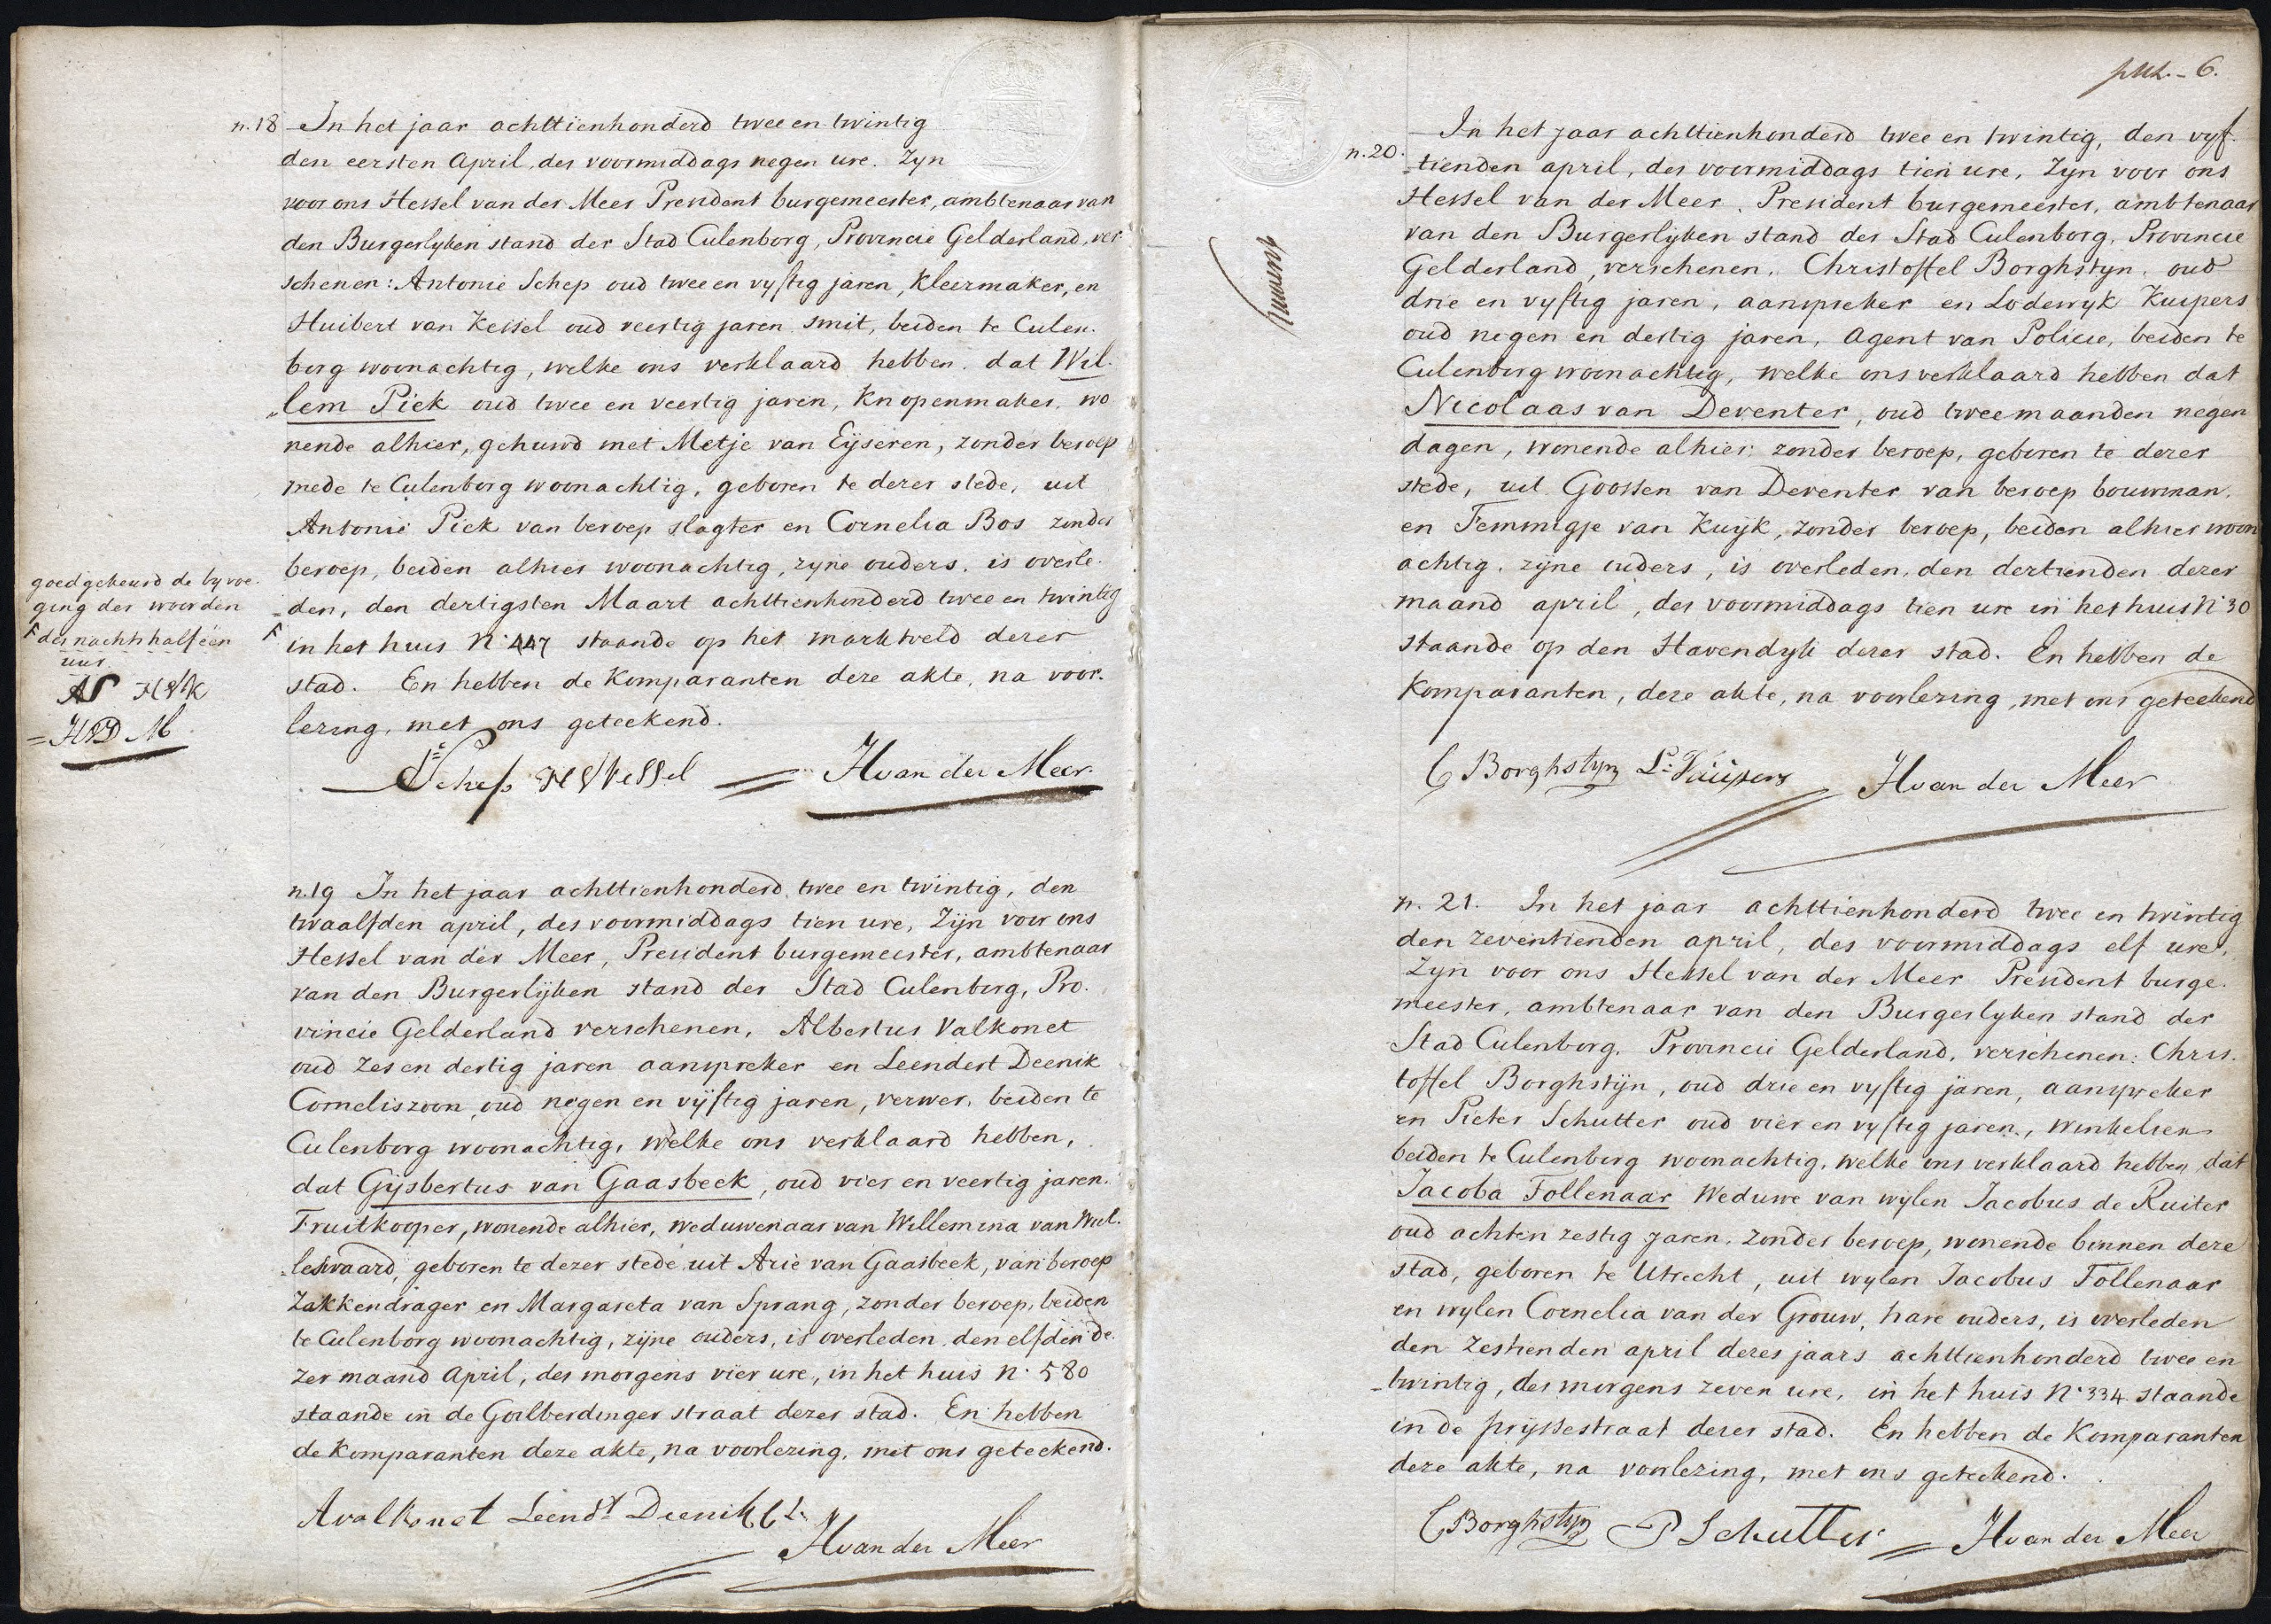 n. 18 In het jaar achttienhonderd twee en twintig
den eersten April, des voormiddags negen ure. Zyn
voor ons Hessel van der Meer President burgemeester, ambtenaar van
den Burgerlyken stand der Stad Culenborg, Provincie Gelderland, ver
schenen: Antonie Schep oud twee en vyftig jaren, Kleermaker, en
Huibert van Kessel oud veertig jaren smit, beiden te Culen-
borg woonachtig, welke ons verklaard hebben, dat Wil-
lem Piek oud twee en veertig jaren, Knopenmaker, wo
nende alhier, gehuwd met Metje van Eijseren, zonder beroep
mede te Culenborg woonachtig, geboren te dezer stede, uit
Antonie Piek van beroep slagter en Cornelia Bos zonder
beroep, beiden alhier woonachtig, zyne ouders, is overle-
den, den dertigsten Maart achttienhonderd twee en twintig
in het huis N. 447 staande op het marktveld dezer
stad. En hebben de Komparanten deze akte, na voor-
lezing, met ons geteekend.
goedgekeurd de byvoe-
ging der woorden
des nachts half een
uur
AS HVK
HVDM
Schep HVKessel H van der Meer
n. 19 In het jaar achttienhonderd twee en twintig, den
twaalfden april, des voormiddags tien ure, Zijn voor ons
Hessel van der Meer, President burgemeester, ambtenaar
van den Burgerlijken stand der Stad Culenborg, Pro-
vincie Gelderland verschenen, Albertus Valkonet
oud zes en dertig jaren aanspreker en Leendert Deenik
Corneliszoon oud negen en vijftig jaren, verwer, beiden te
Culenborg woonachtig, welke ons verklaard hebben,
dat Gijsbertus van Gaasbeek, oud vier en veertig jaren.
Fruitkooper, wonende alhier, weduwenaar van Willemina van Wil-
leswaard, geboren te dezer stede uit Arie van Gaasbeek, van beroep
Zakkendrager en Margareta van Sprang, zonder beroep, beiden
te Culenborg woonachtig, zijne ouders, is overleden den elfden de-
zer maand April, des morgens vier ure, in het huis N. 580
staande in de Goilberdinger straat dezer stad. En hebben
de Komparanten deze akte, na voorlezing, met ons geteekend.
Avalkonet Leendt Deenik CZ
H van der Meer
6.
n. 20. In het jaar achttienhonderd twee en twintig, den vyf-
tienden april, des voormiddags tien ure, Zyn voor ons
Hessel van der Meer, President burgemeester, ambtenaar
van den Burgerlijken stand der Stad Culenborg, Provincie
Gelderland, verschenen, Christoffel Borghstyn, oud
drie en vyftig jaren, aanspreker en Lodewyk Kuipers
oud negen en dertig jaren, Agent van Policie, beiden te
Culenborg woonachtig, welke ons verklaard hebben dat
Nicolaas van Deventer, oud twee maanden negen
dagen, wonende alhier, zonder beroep, geboren te dezer
stede, uit Goossen van Deventer van beroep bouwman,
en Femmigje van Kuijk, zonder beroep, beiden alhier woon
achtig, zijne ouders, is overleden, den dertienden dezer
maand april, des voormiddags tien ure in het huis N. 30
staande op den Havendyk dezer stad. En hebben de
Komparanten, deze akte, na voorlezing, met ons geteekend
C Borghstyn L. Kuijpers H van der Meer
n. 21. In het jaar achttienhonderd twee en twintig
den zeventienden april, des voormiddags elf ure,
Zyn voor ons Hessel van der Meer President burge-
meester, ambtenaar van den Burgerlyken stand der
Stad Culenborg, Provincie Gelderland, verschenen: Chris-
toffel Borghstijn, oud drie en vyftig jaren, aanspreker
en Pieter Schutter oud vier en vyftig jaren, winkelier
beiden te Culenborg woonachtig, welke ons verklaard hebben dat
Jacoba Follenaar Weduwe van wylen Jacobus de Ruiter
oud acht en zestig jaren, zonder beroep, wonende binnen deze
stad, geboren te Utrecht, uit wylen Jacobus Follenaar
en wylen Cornelia van der Grouw, hare ouders, is overleden
den zestienden april dezes jaars achttienhonderd twee en
twintig, des morgens zeven ure, in het huis N. 334 staande
in de prijssestraat dezer stad. En hebben de Komparanten
deze akte, na voorlezing, met ons geteekend.
C Borghstyn P Schutter H van der Meer